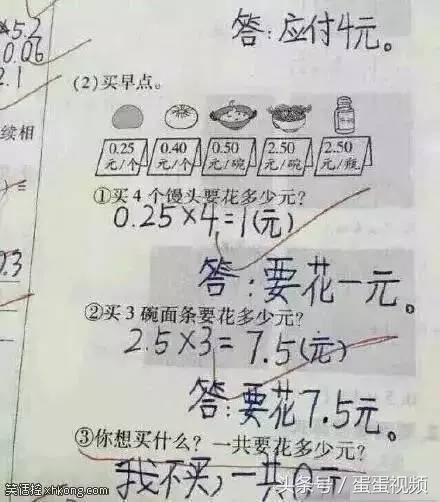 ×5.2
0.06
2.1
答:应付4元。
(2)买早点。
续相
0.25
元/个
0.40
元/个
0.50
元/碗
2.50
元/碗
2.50
元/瓶
①买4个馒头要花多少元?
0.25×4=1(元)
0.3
答:要花一元。
②买3碗面条要花多少元?
2.5×3=7.5(元)
答:要花7.5元。
③你想买什么?一共要花多少元?
我不买,一共0元
头条号/蛋蛋视频
笑话控xhkong.com